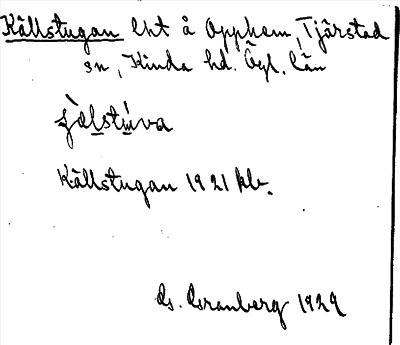 Källstugan lht å Opphem, Tjärstad
sn, Kinda hd. Ögl. län
Källstugan 1921 kbr.
G. Granberg 1929